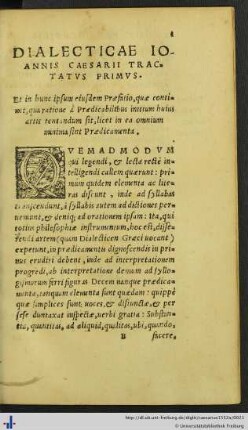 DIALECTICAE IO-
ANNIS CAESARII TRAC-
TATVS PRIMVS.
Et in hunc ipsum eiusdem Præfatio, quæ conti-
net, qua ratione à Prædicabilibus initium huius
artis sit, licet in ea omnium
maxima sint Prædicamenta.
QVEMADMODVM
qui legendi, & lecta recte in-
telligendi callem quærunt: pri-
mum quidem elementa ac lite-
ras discunt, inde ad syllabas
à syllabis autem ad dictiones per-
ueniunt, & denique ad orationem ipsam: ita, qui
totius philosophiæ instrumentum, hoc est, disse-
rendi artem (quam Dialecticen Græci uocant)
expetunt, in prædicamentis dignoscendis in pri-
mis eruditi debent, inde ad interpretationem
progredi, ab interpretatione demum ad syllo-
gismorum ferri figuras. Decem nanque prædica-
menta, tanquam elementa sunt quædam: quippe
quæ simplices sunt uoces, & disiunctæ, & per
sese duntaxat inspectæ, uerbi gratia: Substan-
tia, quantitas, ad aliquid, qualitas, ubi, quando,
B facere,
http://dl.ub.uni-freiburg.de/diglit/caesarius
© Universitätsbibliothek Freiburg